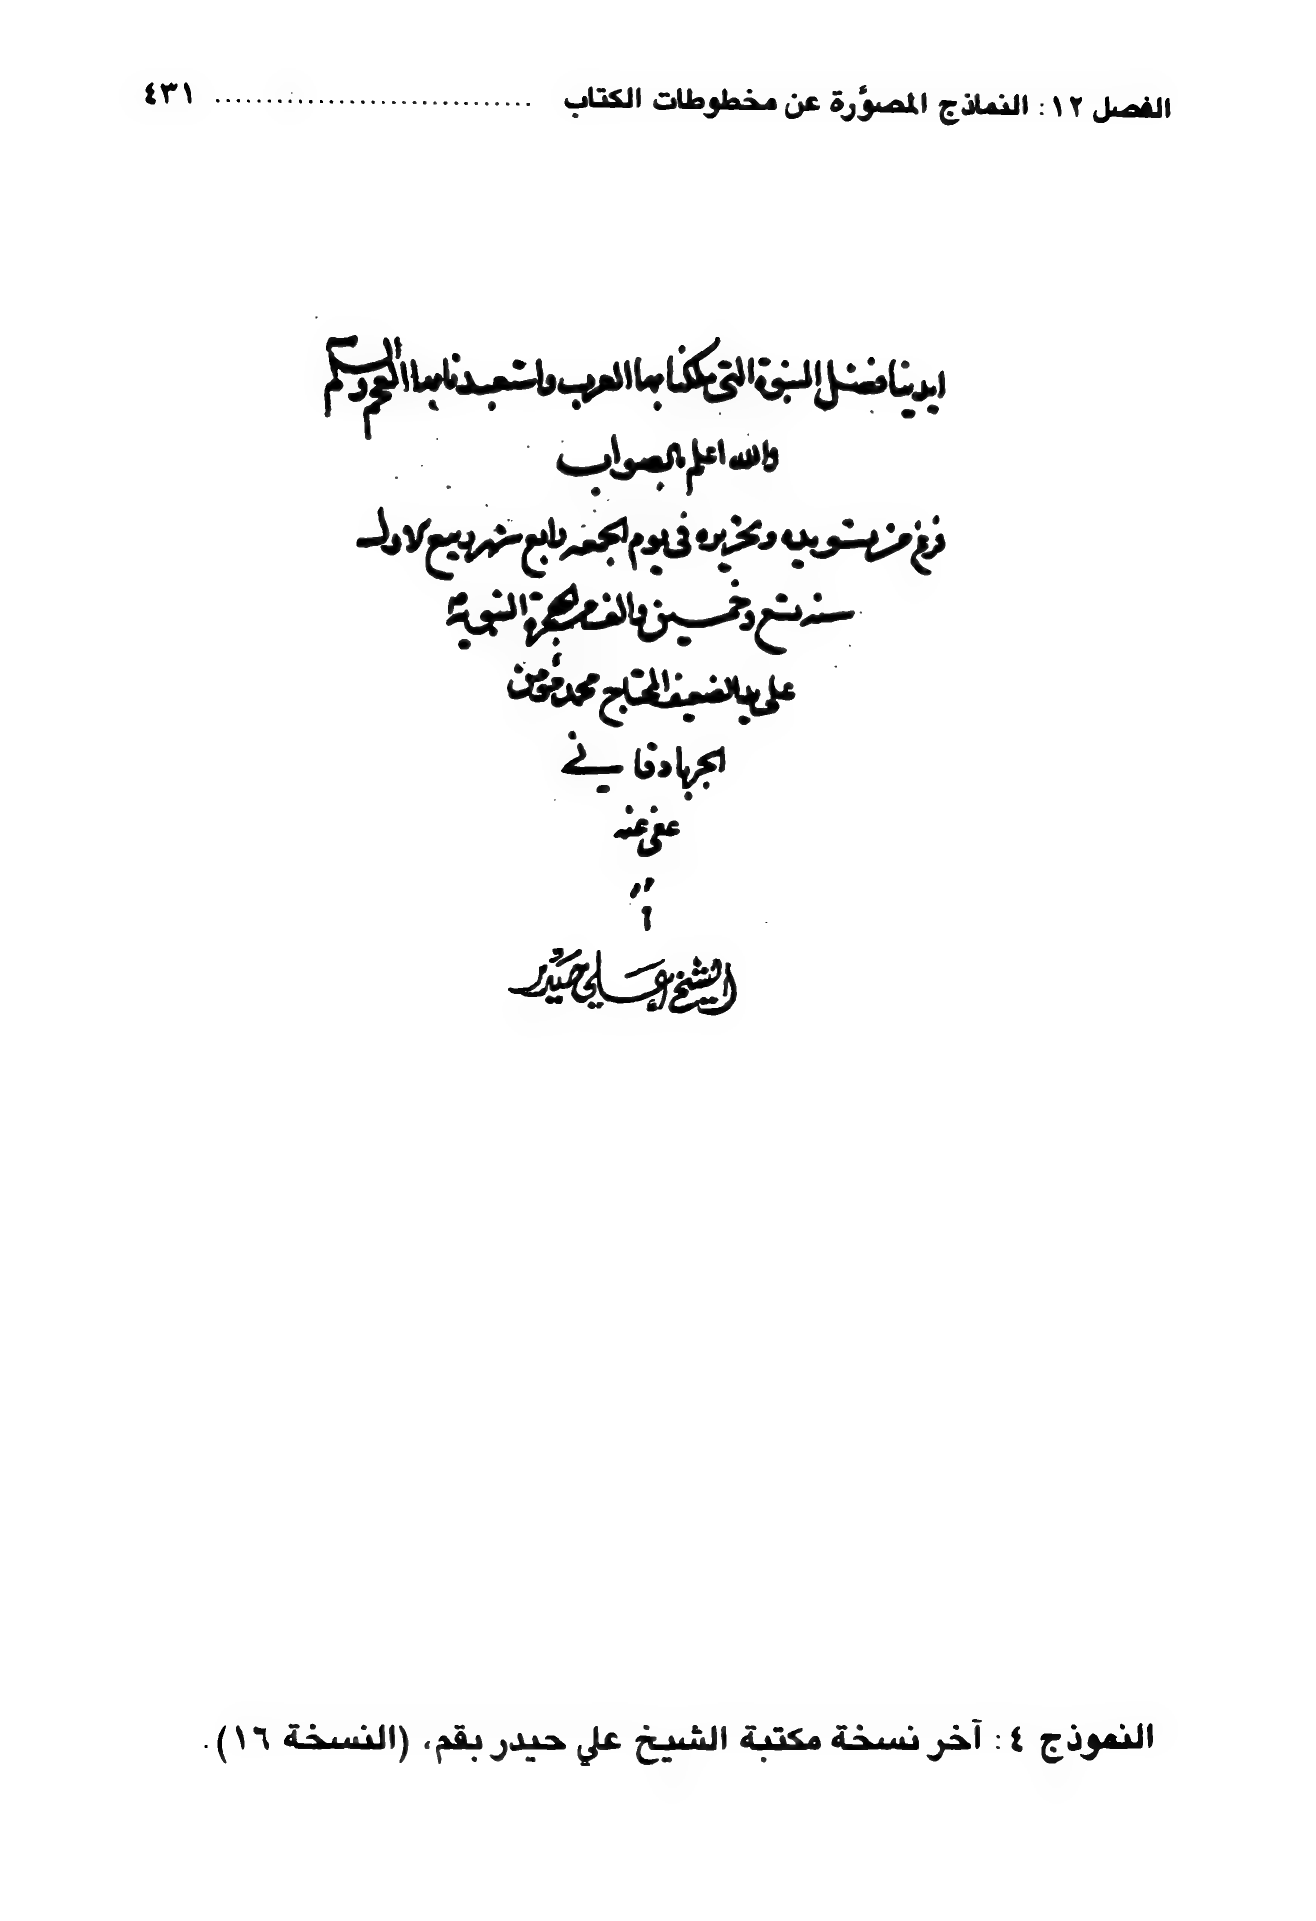 الفصل ١٢: النماذج المصوَّرة عن مخطوطات الكتاب ............................... ٤٣١
ايدينا فضل النبوة التي ملكنا بها العرب واستعبدنا بها العجم والسلم
والله اعلم بالصواب
فرغ من تسويده وتحريره في يوم الجمعه رابع شهر ربيع الاول
سنه تسع وخمسين والف من هجرة النبوية
على يد الضعيف المحتاج محمد مؤمن
الجربادقاني
عفى عنه
الشيخ علي حيدر
النموذج ٤: آخر نسخة مكتبة الشيخ علي حيدر بقم، (النسخة ١٦).